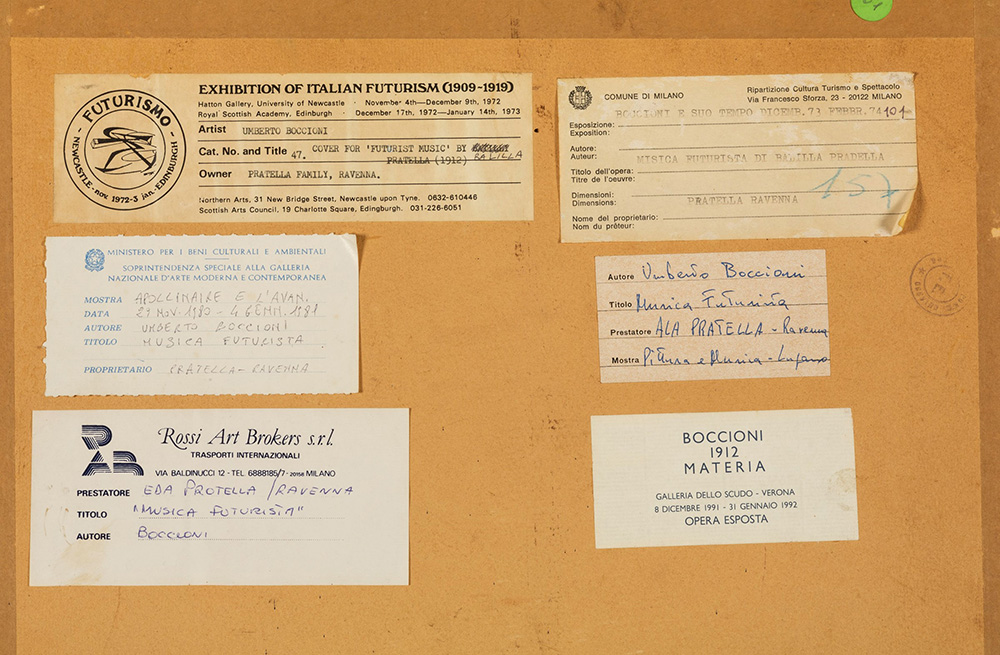 FUTURISMO
NEWCASTLE - nov 1972-3 jan. - EDINBURGH
EXHIBITION OF ITALIAN FUTURISM (1909-1919)
Hatton Gallery, University of Newcastle · November 4th—December 9th, 1972
Royal Scottish Academy, Edinburgh · December 17th, 1972—January 14th, 1973
Artist UMBERTO BOCCIONI
Cat. No. and Title 47. COVER FOR 'FUTURIST MUSIC' BY BALILLA
PRATELLA (1912)
Owner PRATELLA FAMILY, RAVENNA.
Northern Arts, 31 New Bridge Street, Newcastle upon Tyne. 0632-610446
Scottish Arts Council, 19 Charlotte Square, Edingburgh. 031-226-6051
COMUNE DI MILANO
Ripartizione Cultura Turismo e Spettacolo
Via Francesco Sforza, 23 - 20122 MILANO
BOCCIONI E SUO TEMPO DICEMB.73 FEBBR.74 101
Esposizione:
Exposition:
Autore:
Auteur:
MISICA FUTURISTA DI BALILLA PRADELLA
Titolo dell'opera:
Titre de l'oeuvre:
157
Dimensioni:
Dimensions:
PRATELLA RAVENNA
Nome del proprietario:
Nom du prêteur:
MINISTERO PER I BENI CULTURALI E AMBIENTALI
SOPRINTENDENZA SPECIALE ALLA GALLERIA
NAZIONALE D'ARTE MODERNA E CONTEMPORANEA
MOSTRA APOLLINAIRE E L'AVAN.
DATA 27 NOV. 1980 - 4 GENN. 1981
AUTORE UMBERTO BOCCIONI
TITOLO MUSICA FUTURISTA
PROPRIETARIO PRATELLA - RAVENNA
Autore Umberto Boccioni
Titolo Musica Futurista
Prestatore ALA PRATELLA - Ravenna
Mostra Pittura e Musica - Lugano
Rossi Art Brokers s.r.l.
TRASPORTI INTERNAZIONALI
VIA BALDINUCCI 12 - TEL. 6888185/7 - 20158 MILANO
PRESTATORE EDA PROTELLA / RAVENNA
TITOLO "MUSICA FUTURISTA"
AUTORE BOCCIONI
BOCCIONI
1912
MATERIA
GALLERIA DELLO SCUDO - VERONA
8 DICEMBRE 1991 - 31 GENNAIO 1992
OPERA ESPOSTA